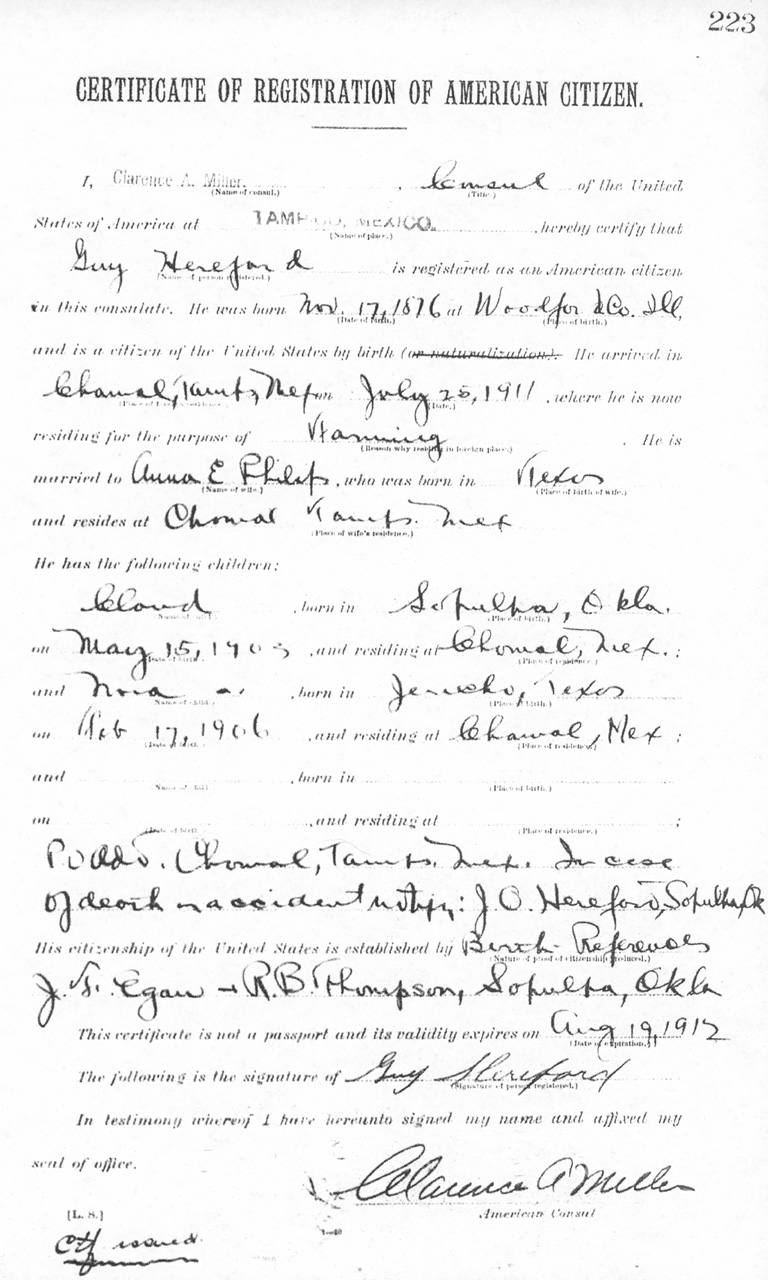 223
CERTIFICATE OF REGISTRATION OF AMERICAN CITIZEN.
I, Clarence A. Miller, Consul of the United
(Name of consul.) (Title.)
States of America at TAMPICO, MEXICO. , hereby certify that
(Name of place.)
Guy Hereford is registered as an American citizen
(Name of person registered.)
in this consulate. He was born Nov. 17, 1876 at Woodford Co. Ill,
(Date of birth.) (Place of birth.)
and is a citizen of the United States by birth (or naturalization). He arrived in
Chamal, Tamps, Mex on July 25, 1911 , where he is now
(Date.)
residing for the purpose of Farming . He is
(Reason why residing in foreign place.)
married to Anna E Philips , who was born in Texas
(Name of wife.) (Place of birth of wife.)
and resides at Chamal Tamps. Mex
(Place of wife's residence.)
He has the following children:
Cloud , born in Sapulpa, Okla.
(Name of child.) (Place of birth.)
on May 15, 1903 , and residing at Chamal, Mex. ;
(Date of birth.) (Place of residence.)
and Nora , born in Jericho, Texas
(Name of child.) (Place of birth.)
on Feb 17, 1906 , and residing at Chamal, Mex ;
(Date of birth.) (Place of residence.)
and , born in
(Name of child.) (Place of birth.)
on , and residing at ;
(Date of birth.) (Place of residence.)
P.O. Add. Chamal, Tamps. Mex. In case
of death or accident notify: J. O. Hereford, Sapulpa, Ok
His citizenship of the United States is established by Birth References
(Nature of proof of citizenship produced.)
J. F. Egan + R. B. Thompson, Sapulpa, Okla
This certificate is not a passport and its validity expires on Aug 19, 1912
(Date of expiration.)
The following is the signature of Guy Hereford
(Signature of person registered.)
In testimony whereof I have hereunto signed my name and affixed my
seal of office.
Clarence A Miller
American Consul
[L. S.]
Ctf issued